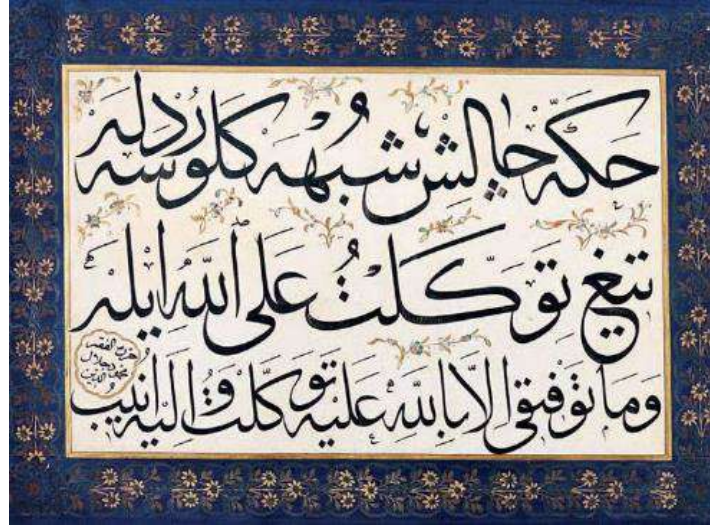 حكّه چالش شبهه كلورسه دله
تیغ توكلتُ على الله ایله
وما توفیقی الا بالله علیه توكلت والیه انیب
حرره الفقیر
محمود جلال
الدین